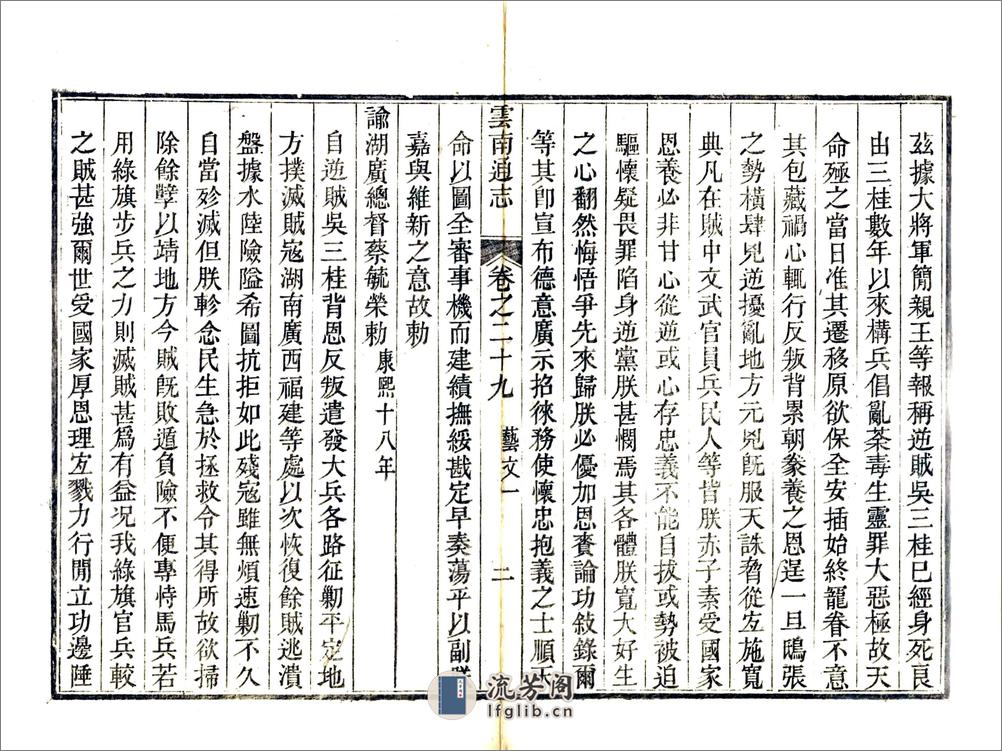 茲據大將軍簡親王等報稱逆賊吳三桂已經身死良
由三桂數年以來構兵倡亂荼毒生靈罪大惡極故天
命殛之當日准其遷移原欲保全安插始終寵眷不意
其包藏禍心輒行反叛背累朝豢養之恩逞一旦鴟張
之勢橫肆兇逆擾亂地方元兇旣服天誅脅從宐施寬
典凡在賊中文武官員兵民人等皆朕赤子素受國家
恩養必非甘心從逆或心存忠義不能自拔或勢被迫
驅懷疑畏罪陷身逆黨朕甚憫焉其各體朕寬大好生
之心翻然悔悟爭先來歸朕必優加恩賚論功敍錄爾
等其卽宣布德意廣示招徠務使懷忠抱義之士順天
雲南通志 卷之二十九 藝文一 二
命以圖全審事機而建績撫綏戡定早奏蕩平以副
嘉與維新之意故勅
諭湖廣總督蔡毓榮勅 康熙十八年
自逆賊吳三桂背恩反叛遣發大兵各路征勦平定地
方撲滅賊寇湖南廣西福建等處以次恢復餘賊逃潰
盤據水陸險隘希圖抗拒如此殘寇雖無煩速勦不久
自當殄滅但朕軫念民生急於拯救令其得所故欲掃
除餘孽以靖地方今賊旣敗遁負險不便專恃馬兵若
用綠旗步兵之力則滅賊甚爲有益况我綠旗官兵較
之賊甚強爾世受國家厚恩理宐戮力行閒立功邊陲
流芳阁
lfglib.cn